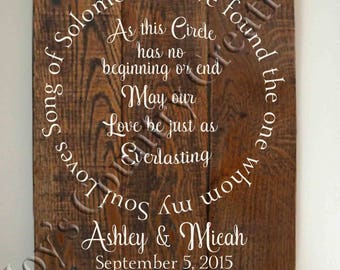 found the one whom my Soul Loves Song of Solomon
As this Circle
has no
beginning or end
May our
Love be just as
Everlasting
Ashley & Micah
September 5, 2015